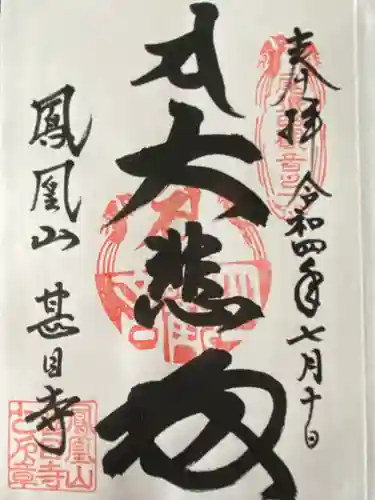 奉拝 令和四年七月十日
大悲殿
鳳凰山 甚目寺
鳳凰山
甚目寺